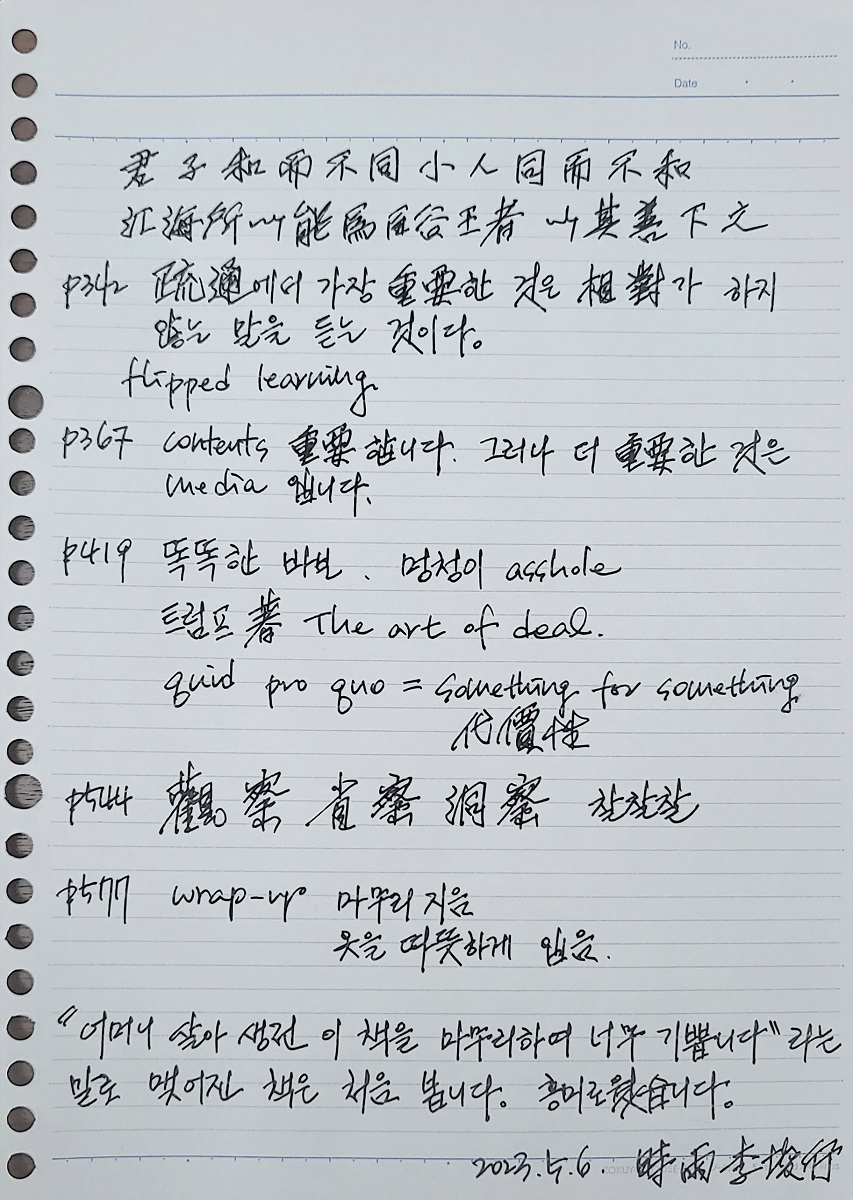 No.
Date
君子和而不同小人同而不和
江海所以能爲百谷王者 以其善下之
p342 疏通에더 가장 重要한 것은 相對가 하지
않는 말을 듣는 것이다。
flipped learning.
p367 contents 重要합니다. 그러나 더 重要한 것은
media 입니다.
p419 똑똑한 바보. 멍청이 asshole
트럼프 著 The art of deal.
quid pro quo = something for something
代價性
p544 觀察 省察 洞察 찰찰찰
p577 wrap-up 마무리 지음
옷을 따뜻하게 입음.
"어머니 살아 생전 이 책을 마무리하여 너무 기쁩니다"라는
말로 맺어진 책은 처음 봅니다。흥미로웠습니다。
2023.5.6. 時雨 李